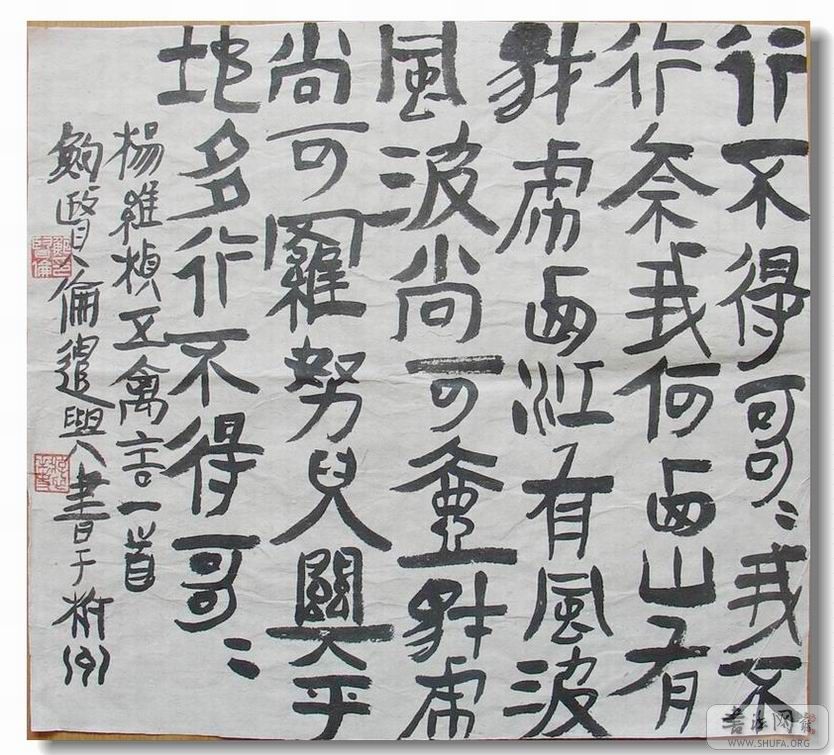 行不得哥〻我不
行奈我何西山有
豺虎西江有風波
風波尚可豺虎
尚可羅努兒關平
地多行不得哥〻
楊維楨五禽言一首
鮑賢倫遣興書于杭州
書法网
WWW.SHUFA.ORG